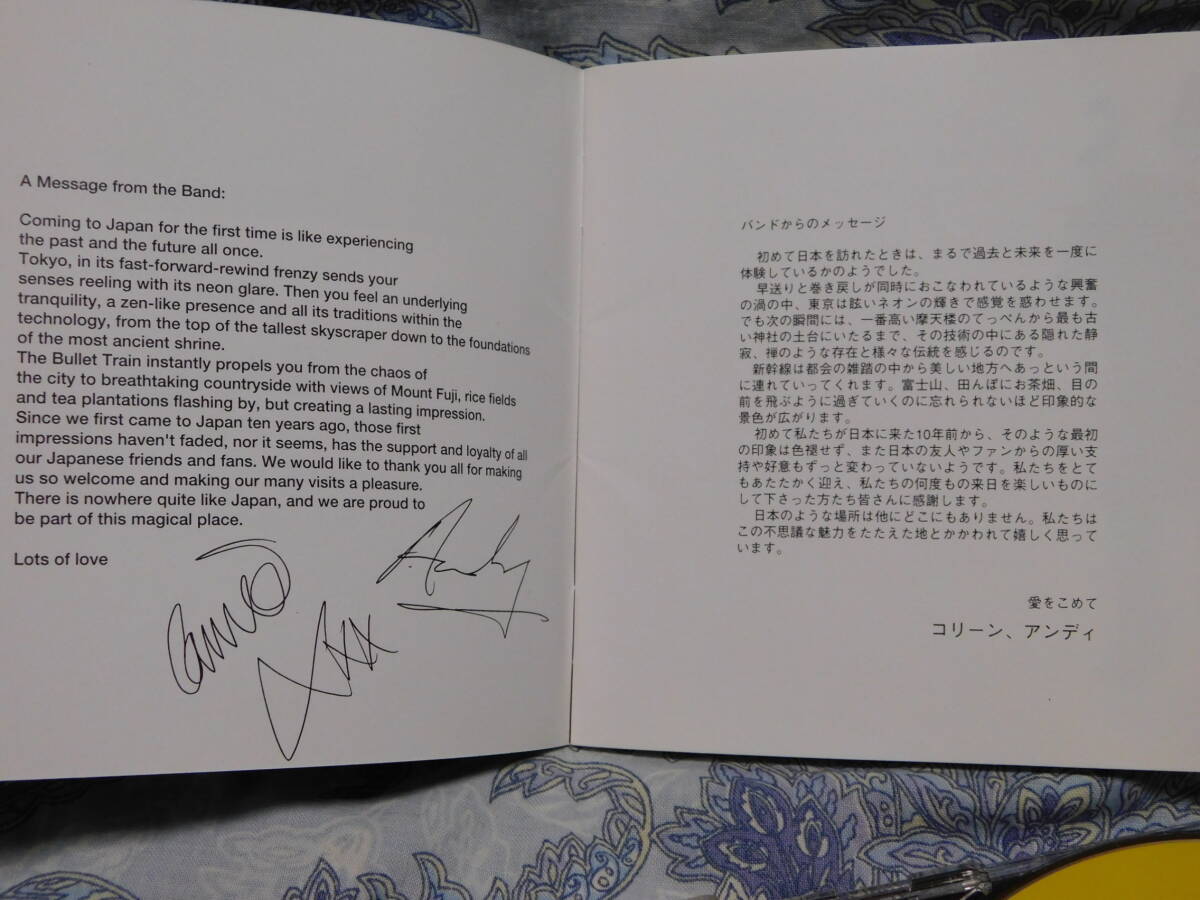 A Message from the Band:
Coming to Japan for the first time is like experiencing
the past and the future all once.
Tokyo, in its fast-forward-rewind frenzy sends your
senses reeling with its neon glare. Then you feel an underlying
tranquility, a zen-like presence and all its traditions within the
technology, from the top of the tallest skyscraper down to the foundations
of the most ancient shrine.
The Bullet Train instantly propels you from the chaos of
the city to breathtaking countryside with views of Mount Fuji, rice fields
and tea plantations flashing by, but creating a lasting impression.
Since we first came to Japan ten years ago, those first
impressions haven't faded, nor it seems, has the support and loyalty of all
our Japanese friends and fans. We would like to thank you all for making
us so welcome and making our many visits a pleasure.
There is nowhere quite like Japan, and we are proud to
be part of this magical place.
Lots of love
Andy
バンドからのメッセージ
初めて日本を訪れたときは、まるで過去と未来を一度に
体験しているかのようでした。
早送りと巻き戻しが同時におこなわれているような興奮
の渦の中、東京は眩いネオンの輝きで感覚を惑わせます。
でも次の瞬間には、一番高い摩天楼のてっぺんから最も古
い神社の土台にいたるまで、その技術の中にある隠れた静
寂、禅のような存在と様々な伝統を感じるのです。
新幹線は都会の雑踏の中から美しい地方へあっという間
に連れていってくれます。富士山、田んぼにお茶畑、目の
前を飛ぶように過ぎていくのに忘れられないほど印象的な
景色が広がります。
初めて私たちが日本に来た10年前から、そのような最初
の印象は色褪せず、また日本の友人やファンからの厚い支
持や好意もずっと変わっていないようです。私たちをとて
もあたたかく迎え、私たちの何度もの来日を楽しいものに
して下さった方たち皆さんに感謝します。
日本のような場所は他にどこにもありません。私たちは
この不思議な魅力をたたえた地とかかわれて嬉しく思って
います。
愛をこめて
コリーン、アンディ